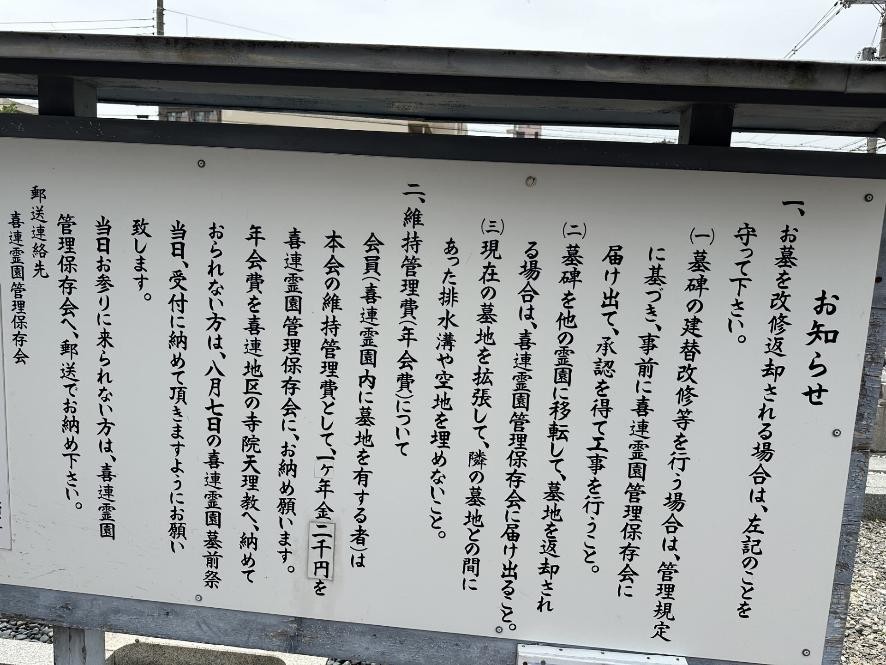 お知らせ
一、お墓を改修返却される場合は、左記のことを
守って下さい。
㈠墓碑の建替改修等を行う場合は、管理規定
に基づき、事前に喜連霊園管理保存会に
届け出て、承認を得て工事を行うこと。
㈡墓碑を他の霊園に移転して、墓地を返却され
る場合は、喜連霊園管理保存会に届け出ること。
㈢現在の墓地を拡張して、隣の墓地との間に
あった排水溝や空地を埋めないこと。
二、維持管理費(年会費)について
会員(喜連霊園内に墓地を有する者)は
本会の維持管理費として、一ヶ年金二千円を
喜連霊園管理保存会に、お納め願います。
年会費を喜連地区の寺院天理教へ、納めて
おられない方は、八月七日の喜連霊園墓前祭
当日、受付に納めて頂きますようにお願い
致します。
当日お参りに来られない方は、喜連霊園
管理保存会へ、郵送でお納め下さい。
郵送連絡先
喜連霊園管理保存会